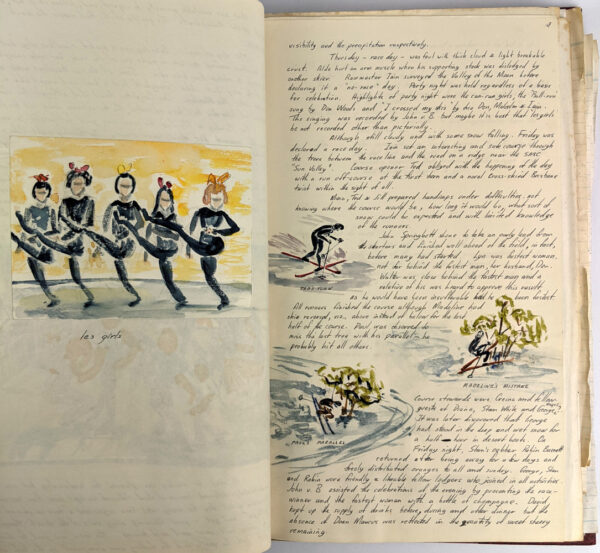 les girls
4
visibility and the precipitation respectively.
Thursday - race day - was foul with thick cloud a light breakable
crust. Aldo hurt an arm muscle when his supporting stock was dislodged by
another skier. Racemaster Iain surveyed the Valley of the Moon before
declaring it a "no-race" day. Party night was held regardless of a basis
for celebration. Highlights of party night were the can-can girls, the
sung by Don Woods and "I crossed my " by the Don, Malcolm & Iain.
This singing was recorded by John v. B but maybe it is best that les girls
be not recorded other than pictorially.
Although still cloudy and with some snow falling, Friday was
declared a race day. Iain set an interesting and safe course through
the trees between the race line and the road on a ridge near the SMC
"Sun Valley". Course opener Ted obliged with the happening of the day
with a run off-course at the first turn and a novel cross-skied
twist within the sight of all.
Miss, Ted & Lil prepared handicaps under difficulties not
knowing where the course would be, how long it would be, what sort of
snow could be expected and with limited knowledge
of the runners.
John Springbett shone to take an early lead from
the starters and finished well ahead of the field, in fact,
before many had started. Lyn was fastest woman,
not far behind the fastest man, her husband, Don.
Walter was close behind the fastest man and a
relative of his was heard to approve this result,
as he would have been insufferable had he been fastest.
All runners finished the course although Madeline had
skis reversed, viz., above instead of below for the best
half of the course. Paul was observed to
miss the last tree with his parallel - he
probably hit all others.
TED'S TURN
MADELINE'S MISTAKE
PAUL'S PARALLEL
Course stewards were Cecina and fellow
guests at Doona, Stan White and George
It was later discovered that George
had stood in the deep and wet snow for
a half-hour in desert boots. On
Friday night, Stan's offsider Robin
returned after being away for a few days and
freely distributed oranges to all and sundry. George, Stan
and Robin were friendly & likeable fellow lodgers who joined in all activities.
John v. B assisted the celebrations of the evening by presenting the race-
winner and the fastest woman with a bottle of champagne. David
kept up the supply of drinks before, during and after dinner but the
absence of Doon Marcus was reflected in the quantity of sweet sherry
remaining.